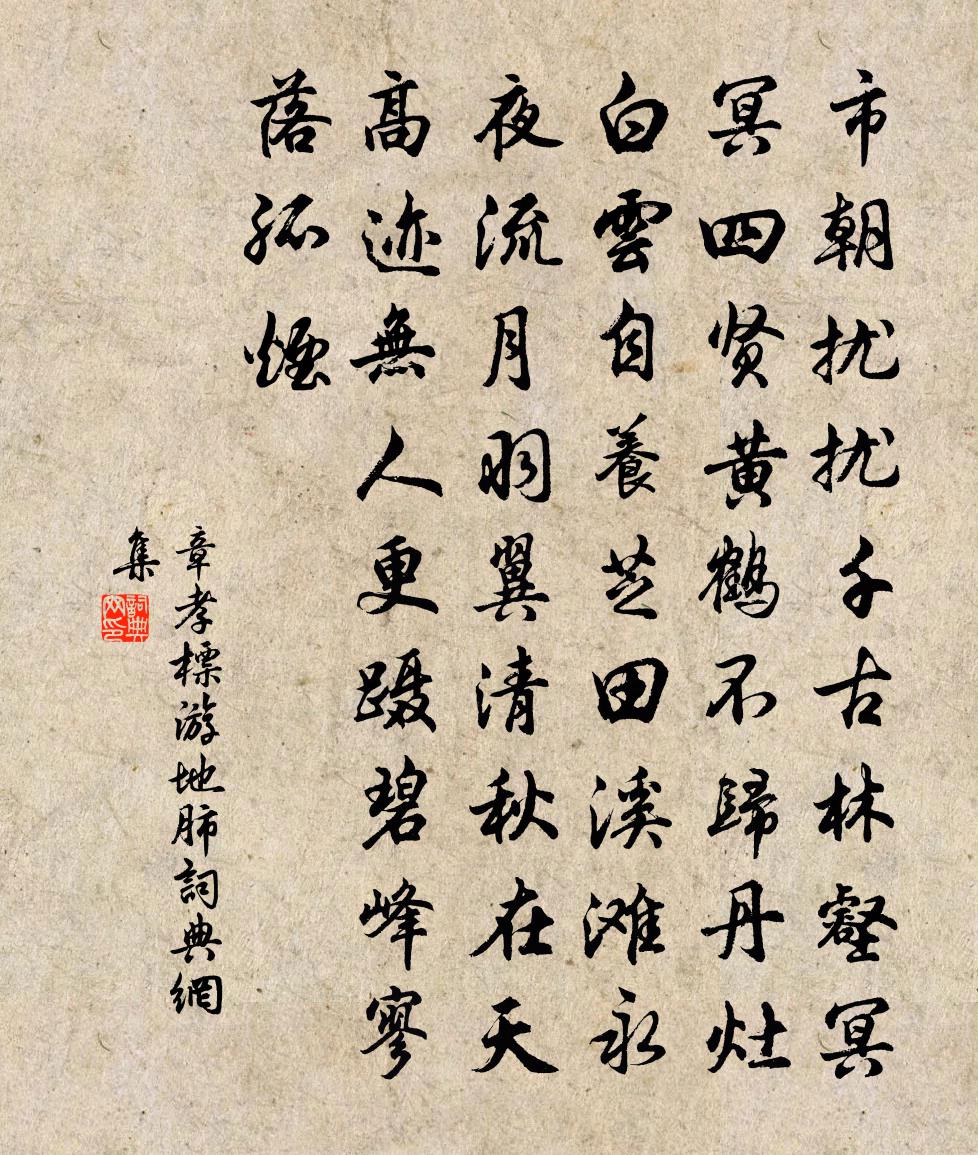 市朝扰扰千古林壑冥
冥四贤黄鹤不歸丹灶
白雲自養芝田溪滩永
夜流月羽翼清秋在天
高迹無人更蹑碧峰寥
落孤煙
章孝標游地肺詞典網
集
詞典
网印